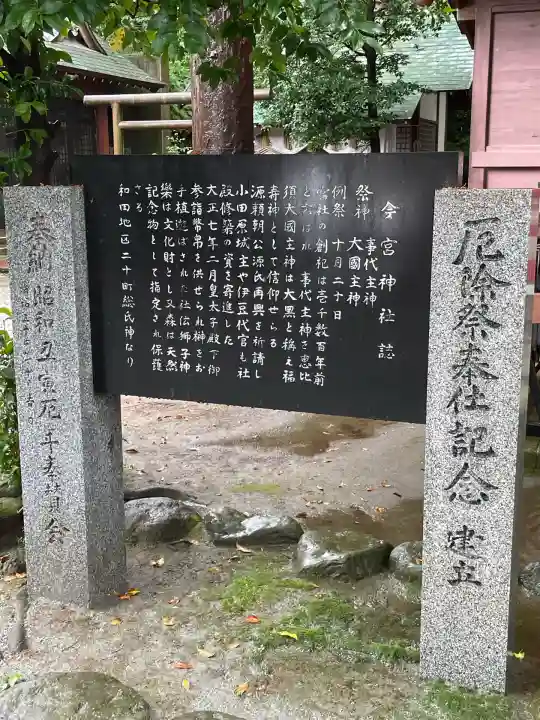 今宮神社誌
祭神　事代主神
　　　大國主神
例祭　十月二十日
当社の創祀は壱千数百年前
と云はれ　事代主神を恵比
須大國主神は大黒と称え福
寿神として信仰せらる
源頼朝公源氏再興を祈請し
小田原城主や伊豆代官も社
殿修築の資を寄進した
大正七年二月皇太子殿下御
参詣幣帛を供せられ榊をお
手植遊ばされた社伝獅子神
楽は文化財とし又森は天然
記念物として指定され保護
さる
和田地区二十町総氏神なり
厄除祭奉仕記念　建立
奉献　昭和丑寅厄年奉賛会